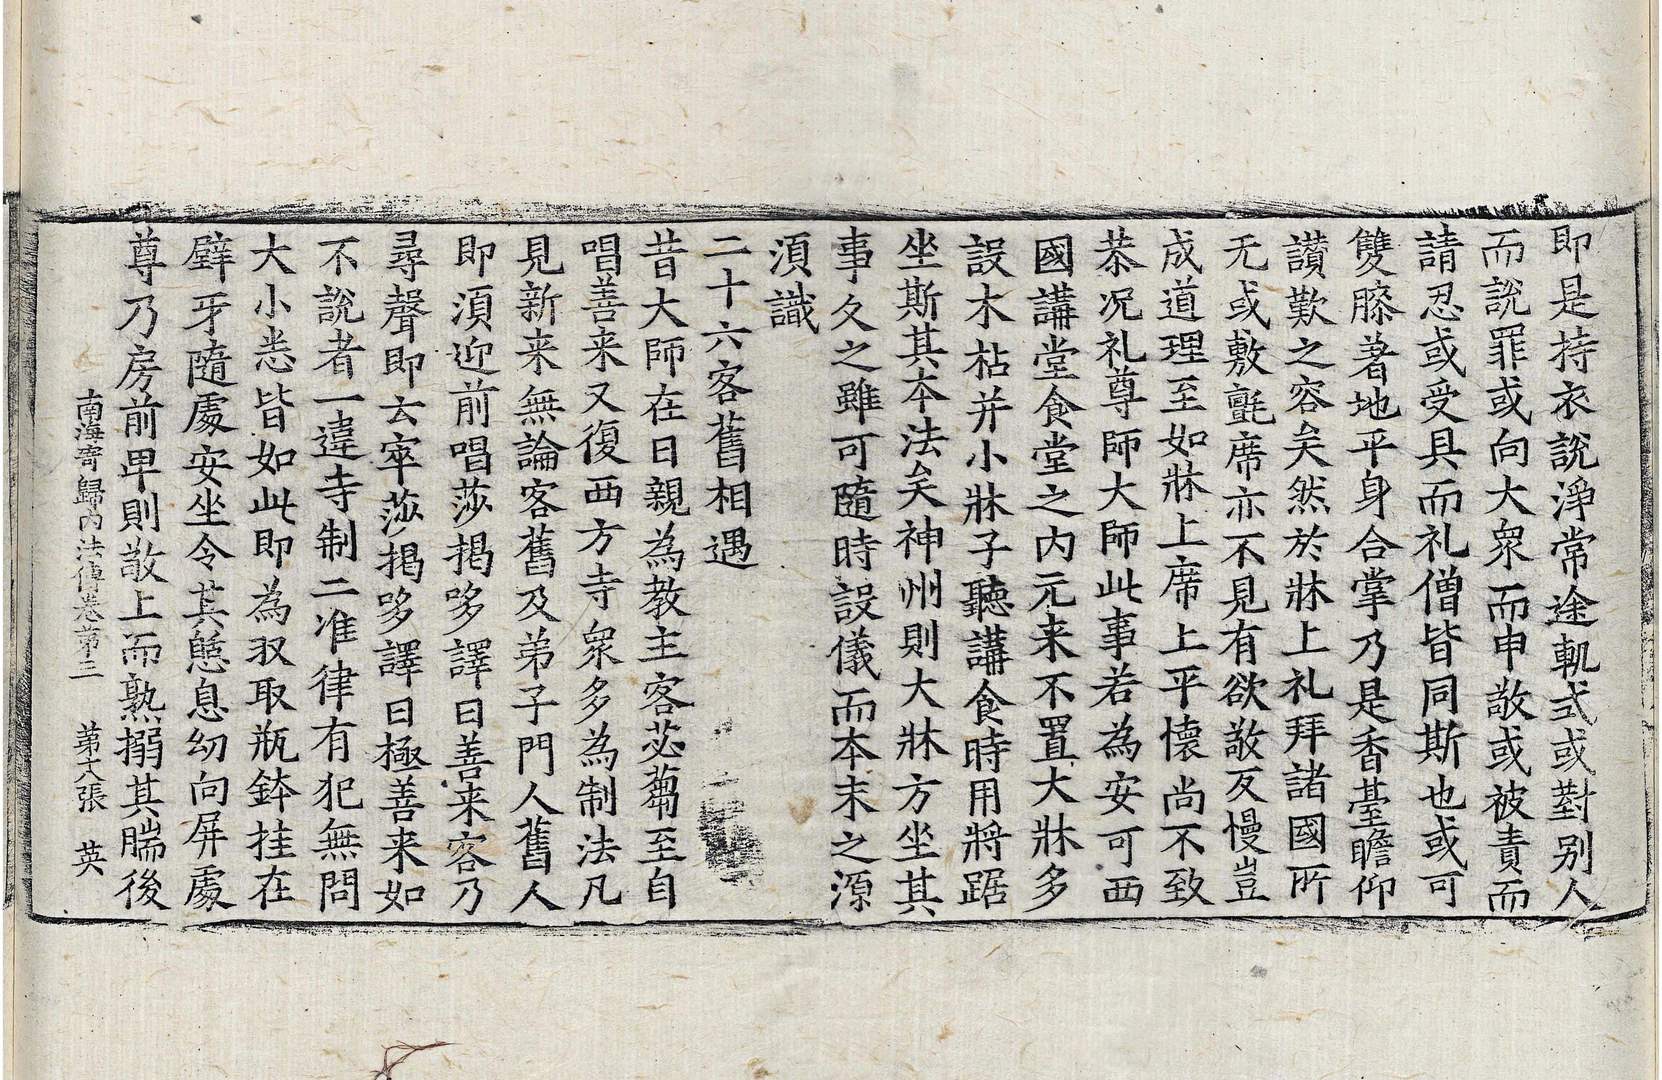 即是持衣說淨常途軌式或對別人
而說罪或向大衆而申敬或被責而
請忍或受具而礼僧皆同斯也或可
雙膝著地平身合掌乃是香臺瞻仰
讚歎之容矣然於牀上礼拜諸國所
无或敷氈席亦不見有欲敬反慢豈
成道理至如牀上席上平懷尚不致
恭况礼尊師大師此事若為安可西
國講堂食堂之内元来不置大牀多
設木枮并小牀子聽講食時用將踞
坐斯其本法矣神州則大牀方坐其
事久之雖可隨時設儀而本末之源
須識
二十六客舊相遇
昔大師在日親為教主客苾蒭至自
唱善来又復西方寺衆多為制法凡
見新来無論客舊及弟子門人舊人
即須迎前唱莎揭哆譯曰善来客乃
尋聲即云窣莎揭哆譯曰極善来如
不說者一違寺制二准律有犯無問
大小悉皆如此即為収取瓶鉢挂在
壁牙隨處安坐令其憩息幼向屏處
尊乃房前卑則敬上而熟搦其腨後
南海寄歸内法傳卷第三 第大張 英